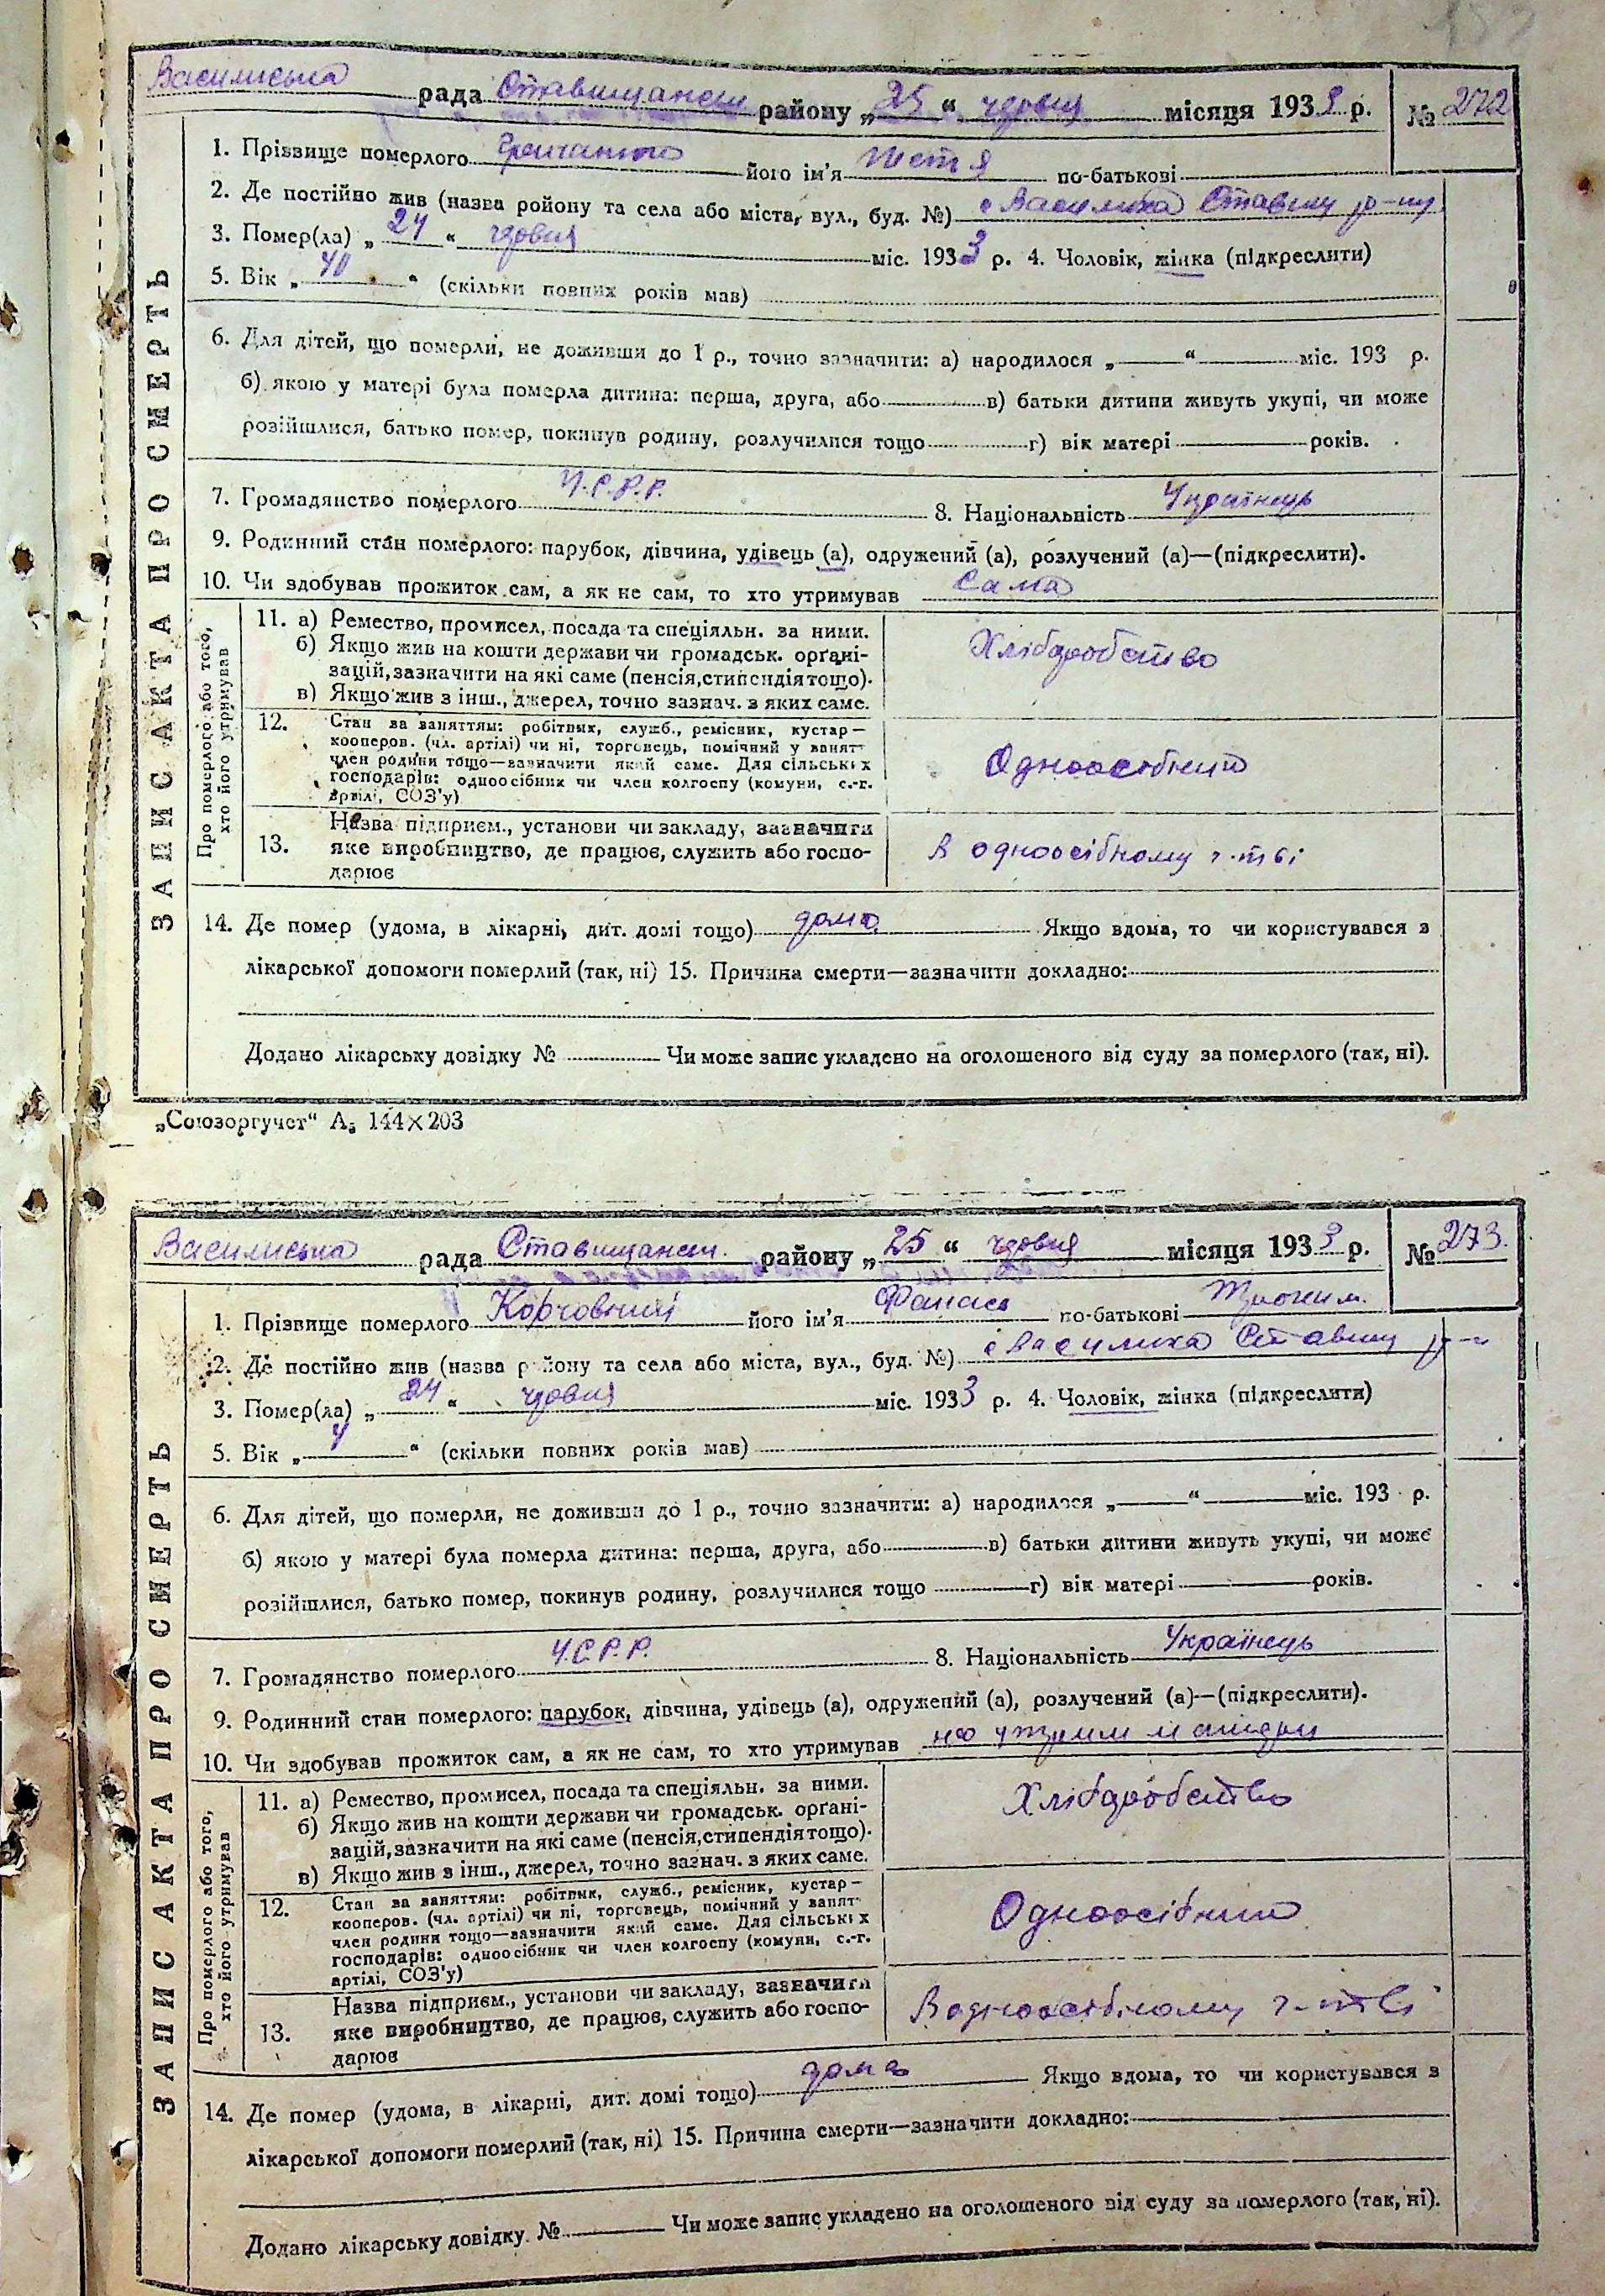 Василиська рада Ставищанськ району „25“ червня місяця 1933 р. № 272
ЗАПИС АКТА ПРО СМЕРТЬ
1. Прізвище померлого його ім'я по-батькові
2. Де постійно жив (назва ройону та села або міста, вул., буд. №) с Василиха Ставищ р-ну
3. Помер(ла) „24“ червня міс. 1933 р. 4. Чоловік, жінка (підкреслити)
5. Вік „40“ (скільки повних років мав)
6. Для дітей, що померли, не доживши до 1 р., точно зазначити: а) народилося „ “ міс. 193 р.
б) якою у матері була померла дитина: перша, друга, або в) батьки дитини живуть укупі, чи може
розійшлися, батько помер, покинув родину, розлучилися тощо г) вік матері років.
7. Громадянство померлого У.С.Р.Р. 8. Національність Українець
9. Родинний стан померлого: парубок, дівчина, удівець (а), одружений (а), розлучений (а)—(підкреслити).
10. Чи здобував прожиток сам, а як не сам, то хто утримував Сама
Про померлого або того, хто його утримував
11. а) Ремество, промисел, посада та спеціяльн. за ними.
б) Якщо жив на кошти держави чи громадськ. орґані-
зацій, зазначити на які саме (пенсія, стипендія тощо).
в) Якщо жив з інш., джерел, точно зазнач. з яких саме.
Хліборобство
12. Стан за заняттям: робітник, служб., ремісник, кустар—
кооперов. (чл. артілі) чи ні, торговець, помічний у занят-
член родини тощо—зазначити який саме. Для сільських
господарів: одноосібник чи член колгоспу (комуни, с.-г.
артілі, СОЗ'у)
Одноосібник
13. Назва підприєм., установи чи закладу, зазначити
яке виробництво, де працює, служить або госпо-
дарює
В одноосібному г-тві
14. Де помер (удома, в лікарні, дит. домі тощо) дома Якщо вдома, то чи користувався з
лікарської допомоги померлий (так, ні) 15. Причина смерти—зазначити докладно:
Додано лікарську довідку № Чи може запис укладено на оголошеного від суду за померлого (так, ні).
„Союзоргучет“ А₅ 144×203
Василиська рада Ставищанськ. району „25“ червня місяця 1933 р. № 273.
ЗАПИС АКТА ПРО СМЕРТЬ
1. Прізвище померлого Корчовний його ім'я Фанас по-батькові
2. Де постійно жив (назва ройону та села або міста, вул., буд. №) с Василиха Ставищ р-н
3. Помер(ла) „24“ червня міс. 1933 р. 4. Чоловік, жінка (підкреслити)
5. Вік „4“ (скільки повних років мав)
6. Для дітей, що померли, не доживши до 1 р., точно зазначити: а) народилося „ “ міс. 193 р.
б) якою у матері була померла дитина: перша, друга, або в) батьки дитини живуть укупі, чи може
розійшлися, батько помер, покинув родину, розлучилися тощо г) вік матері років.
7. Громадянство померлого У.С.Р.Р. 8. Національність Українець
9. Родинний стан померлого: парубок, дівчина, удівець (а), одружений (а), розлучений (а)—(підкреслити).
10. Чи здобував прожиток сам, а як не сам, то хто утримував на утрим матери
Про померлого або того, хто його утримував
11. а) Ремество, промисел, посада та спеціяльн. за ними.
б) Якщо жив на кошти держави чи громадськ. орґані-
зацій, зазначити на які саме (пенсія, стипендія тощо).
в) Якщо жив з інш., джерел, точно зазнач. з яких саме.
Хліборобство
12. Стан за заняттям: робітник, служб., ремісник, кустар—
кооперов. (чл. артілі) чи ні, торговець, помічний у занят-
член родини тощо—зазначити який саме. Для сільських
господарів: одноосібник чи член колгоспу (комуни, с.-г.
артілі, СОЗ'у)
Одноосібник
13. Назва підприєм., установи чи закладу, зазначити
яке виробництво, де працює, служить або госпо-
дарює
В одноосібному г-тві
14. Де помер (удома, в лікарні, дит. домі тощо) дома Якщо вдома, то чи користувався з
лікарської допомоги померлий (так, ні) 15. Причина смерти—зазначити докладно:
Додано лікарську довідку № Чи може запис укладено на оголошеного від суду за померлого (так, ні).